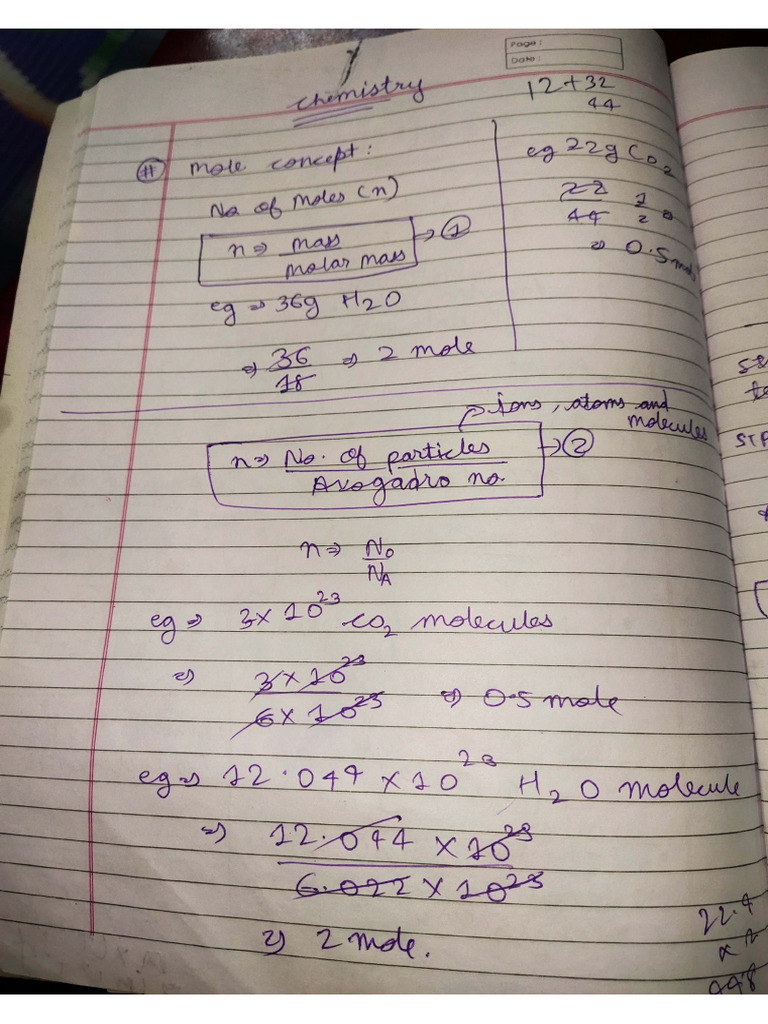 Page :
Date :
Chemistry
12+32
44
# Mole concept :
No of Moles (n)
n ⇒ mass
molar mass → 1
eg ⇒ 36g H2O
⇒ 36
18 ⇒ 2 mole
eg 22g CO2
22 1
44 2
⇒ 0.5 mole
→ ions, atoms and
molecules
n ⇒ No. of particles
Avogadro no. → 2
n ⇒ No
NA
eg ⇒ 3×10^23 CO2 molecules
⇒ 3×10^23
6×10^23 ⇒ 0.5 mole
eg ⇒ 12.044×10^23 H2O molecule
⇒ 12.044 × 10^23
6.022 × 10^23
⇒ 2 mole.
STP
22.4
× 2
44.8